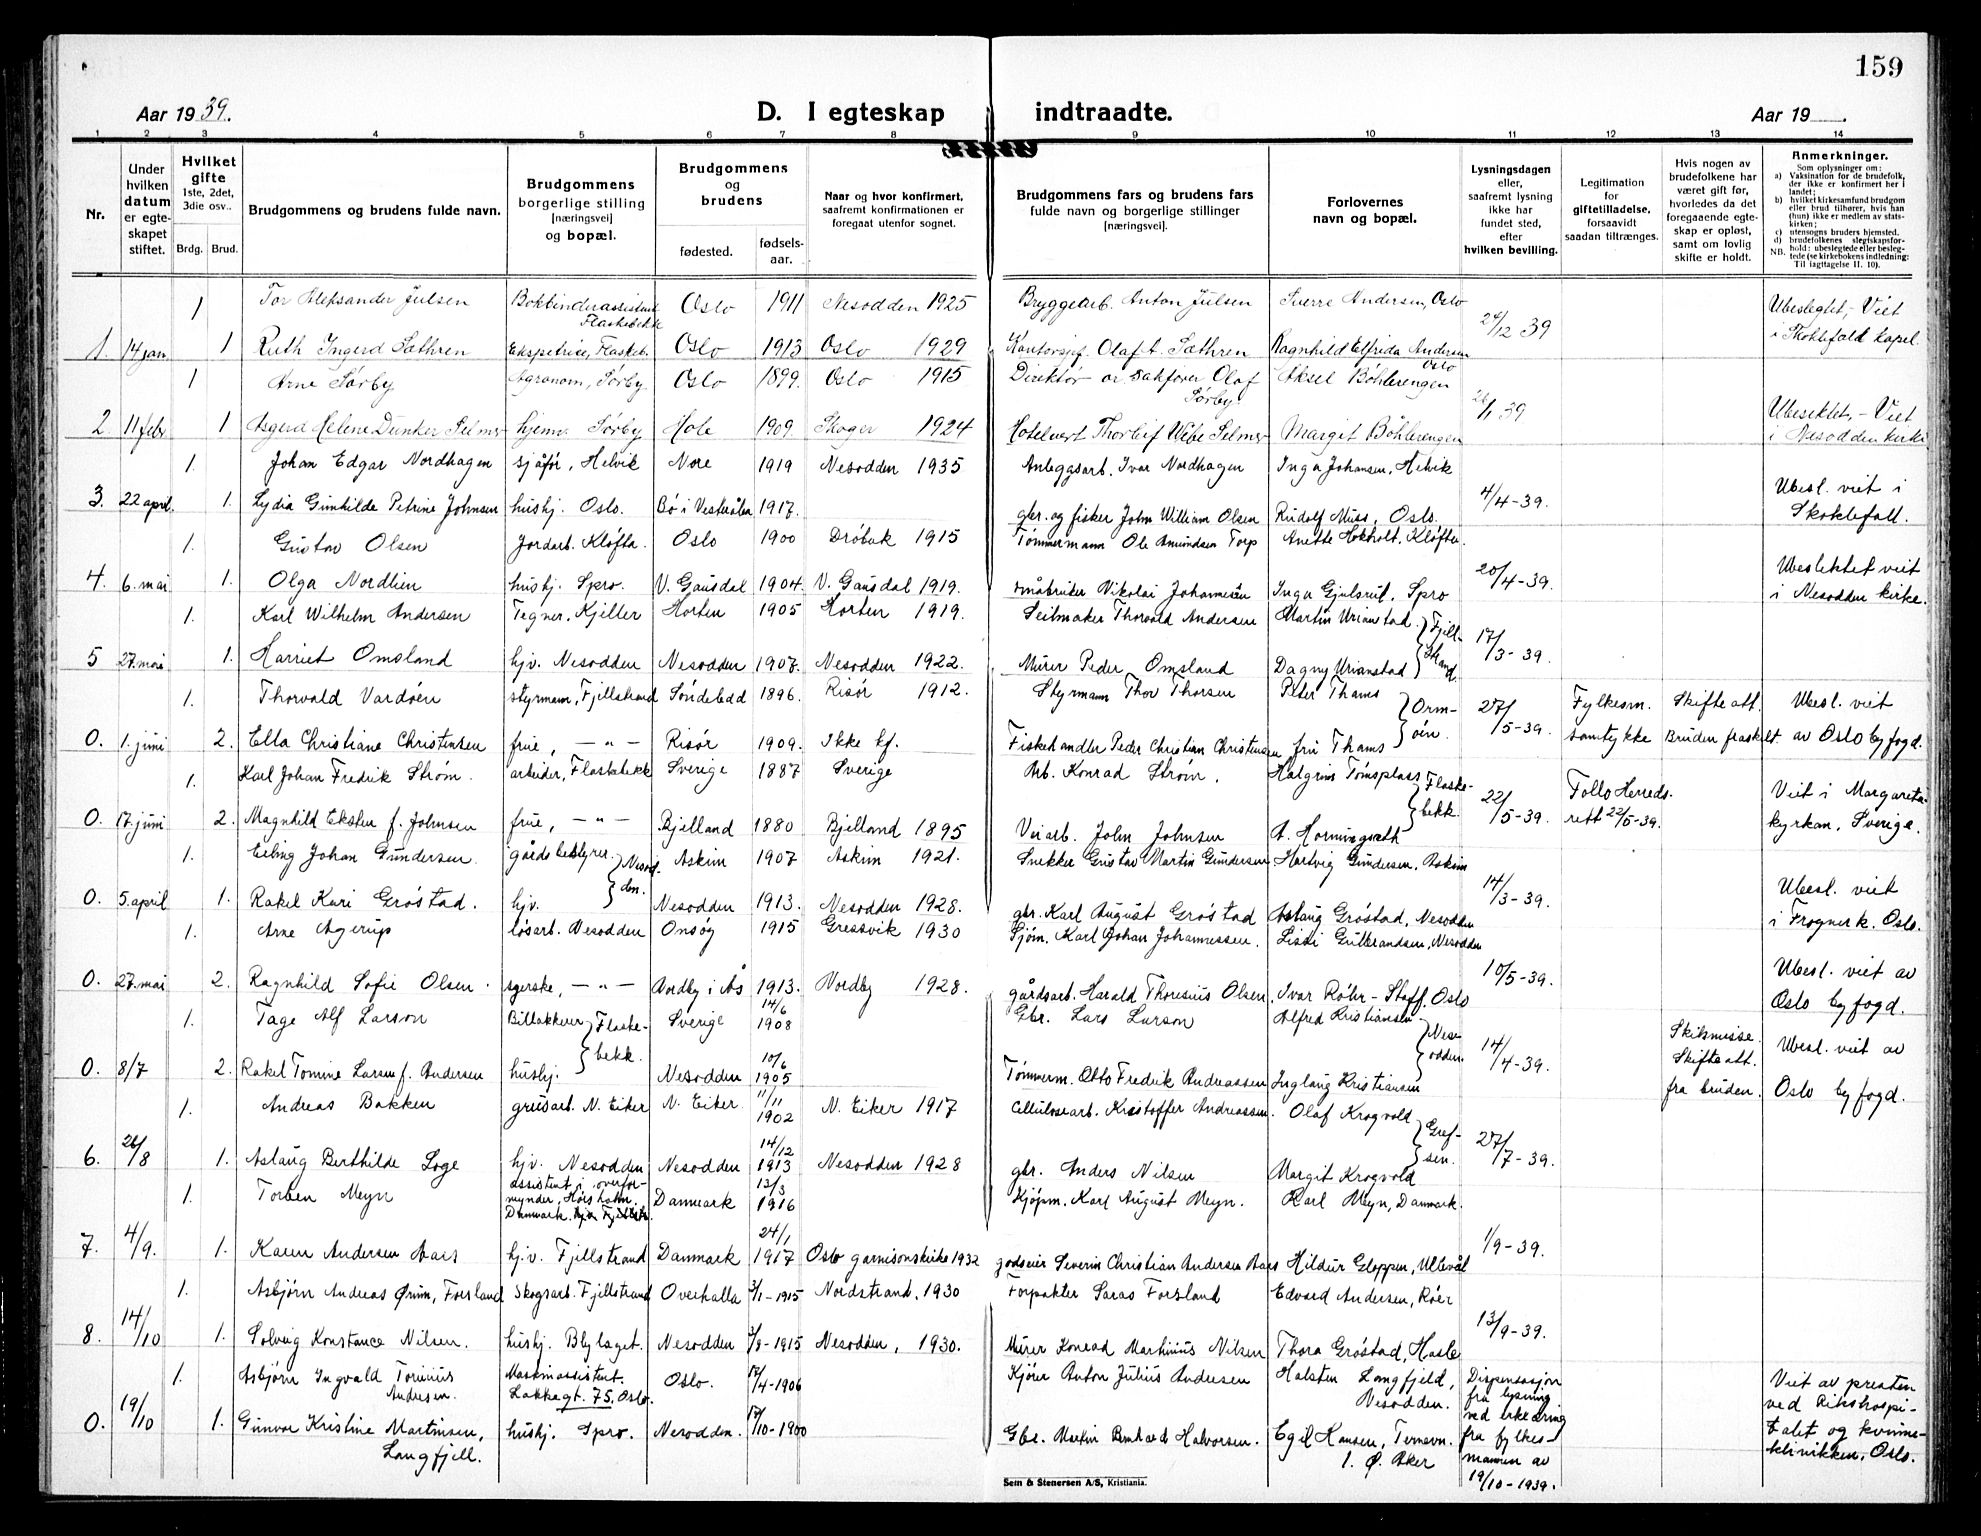 159
Aar 1939.
D. I egteskap indtraadte.
Aar 19
1 2 3 4 5 6 7 8 9 10 11 12 13 14
Nr.
Under hvilken datum er egteskapet stiftet.
Hvilket gifte 1ste, 2det, 3die osv..
Brdg. Brud.
Brudgommens og brudens fulde navn.
Brudgommens borgerlige stilling [næringsvei] og bopæl.
Brudgommens og brudens
fødested.
fødselsaar.
Naar og hvor konfirmert, saafremt konfirmationen er foregaat utenfor sognet.
Brudgommens fars og brudens fars fulde navn og borgerlige stillinger [næringsvei].
Forlovernes navn og bopæl.
Lysningsdagen eller, saafremt lysning ikke har fundet sted, efter hvilken bevilling.
Legitimation for giftetilladelse, forsaavidt saadan tiltrænges.
Hvis nogen av brudefolkene har været gift før, hvorledes da det foregaaende egteskap er opløst, samt om lovlig skifte er holdt.
Anmerkninger.
Som oplysninger om:
a) Vaksination for de brudefolk, der ikke er konfirmert her i landet;
b) hvilket kirkesamfund brudgom eller brud tilhører, hvis han (hun) ikke er medlem av statskirken;
c) utensogns bruders hjemsted.
d) brudefolkenes slegtskapsforhold: ubeslegtede eller beslegtede (se kirkebokens indledning:
NB. Til iagttagelse II. 10).
1 Tor Aleksander Julsen Bokbinderassistent Flaskebekk Oslo 1911 Nesodden 1925 Bryggearb. Anton Julsen Sverre Andersen, Oslo 29/12 39 Ubeslegtet,- Viet
1. 14 jan. 1 Ruth Ingerd Sæthren Ekspetrise, Flaskeb. Oslo 1913 Oslo 1929 Kontorsjef. Olaf A. Sæthren Ragnhild Elfrida Andersen Oslo i Skoklefald kapel.
1 Arne Sørby Agronom, Sørby Oslo 1899. Oslo 1915 Direktør Olaf Sørby. Aksel Böhlerengen 39
2. 11 febr 1 Asgerd Helene Dunker Selmer hjemv. Sørby Hole 1909. Skoger 1924 Hotelvert Thorleif Webe Selmer Margit Böhlerengen Viet i Nesodden kirke
1. Johan Edgar Nordhagen sjåför, Helvik Nore 1919 Nesodden 1935 Anleggsarb. Ivar Nordhagen Inga Johansen, Helvik 4/4-39. Ubesl. viet i
3. 22 april. 1. Lydia Gunhilde Petrine Johnsen hushj. Oslo. Bö i Vesterålen 1917. gbr. og fisker John William Olsen Rudolf Muss, Oslo. Skoklefall.
1. Gustav Olsen Jordarb. Kløfta. Oslo 1900 Dröbak 1915 Tømmermann Ole Amundsen Torp Anette Hokholt, Kløfta. 20/4-39. Ubeslektet viet
4. 6. mai 1. Olga Nordlien hushj. Spro. V. Gausdal 1904. V. Gausdal 1919. småbruker Nikolai Johannesen Inga Gjulsrud, Spro i Nesodden kirke.
1. Karl Wilhelm Andersen Tegner, Kjeller Horten 1905 Horten 1919. Seilmaker Thorvald Andersen Martin Urianstad } Fjellstrand 17/3-39.
5 27. mai 1. Harriet Omsland hjv. Nesodden Nesodden 1907. Nesodden 1922. Murer Peder Omsland Dagny Urianstad
1. Thorvald Vardöen styrmann, Fjellstrand Söndeled 1896. Risör 1912. Styrmann Thor Thorsen Peter Thams } Ormöen. 27/5-39. Fylkesm. Skifteatt. Ubesl. viet
0. 1. juni 2. Ella Christiane Christensen frue, —"— Risör 1909. Ikke kf. Fiskehandler Peder Christian Christensen fru Thams samtykke Bruden fraskilt. av Oslo byfogd.
1. Karl Johan Fredrik Ström. arbeider, Flaskebekk Sverige 1887 Sverige Arb. Konrad Ström. Halgrim Tömsplass } Flaskebekk. 22/5-39. Follo Herredsrett 22/5-39. Viet i Margareta-
0. 17. juni 2. Magnhild Eksten f. Johnsen frue, —"— Bjelland 1880 Bjelland 1895 Veiarb. John Johnsen kyrkan, Sverige.
1. Erling Johan Gundersen. gårdsbestyrer. } Nesodden. Askim 1907 Askim 1921. Snekker Gustav Martin Gundersen Hartvig Gundersen, Askim 14/3-39. Ubesl. viet
0. 5. april 1. Rakel Kari Gröstad. hjv. Nesodden 1913. Nesodden 1928. gbr. Karl August Gröstad Aslaug Gröstad, Nesodden i Frogner k. Oslo.
1. Arne Agerup lösarb. Nesodden Onsöy 1915 Gressvik 1930 Sjöm. Karl Johan Johannessen. Lissi Gulbrandsen, Nesodden 10/5-39. Ubesl. viet av
0. 27. mai 2. Ragnhild Sofie Olsen. syerske, —"— Nordby i Ås 1913. Nordby 1928. gårdsarb. Harald Thoresius Olsen. Ivar Röhr-Staff, Oslo Oslo byfogd.
1. Tage Alf Larson Billakkerer } Flaskebekk. Sverige 14/6 1908 Gbr. Lars Larson Alfred Kristiansen } Nesodden 14/4-39. Skilsmisse. Skifteatt. Ubesl. viet av
0. 8/7 2. Rakel Tomine Larsen f. Andersen hushj. Nesodden 10/6 1905 Tömmerm. Otto Fredrik Andreassen Inglaug Kristiansen fra bruden. Oslo byfogd.
1. Andreas Bakken grusarb. N. Eiker N. Eiker 11/11 1902 N. Eiker 1917 Cellulosearb. Kristoffer Andreassen. Olaf Krogvold } Grefsen. 27/7-39.
6. 26/8 1. Aslaug Berthilde Loge hjv. Nesodden Nesodden 14/12 1913 Nesodden 1928 gbr. Anders Nilsen Margit Krogvold
1. Torben Meyn assistent i overformynder, Hørsholm. Danmark. Danmark 13/3 1916 Kjöpm. Karl August Meyn. Karl Meyn, Danmark. 1/9-39.
7. 4/9. 1. Karen Andersen Aais hj.v. Fjellstrand Danmark 24/1 1917 Oslo garnisonskirke 1932 godseier Severin Christian Andersen Aaes Hildur Gloppen, Ullevål
1. Asbjörn Andreas Ørum, Forsland Skogsarb. Fjellstrand Overhalla 3/1-1915 Nordstrand, 1930 Forpakter Saras Forsland Edvard Andersen, Röer 13/9-39.
8. 14/10 1. Solveig Konstance Nilsen. hushj. Blylaget. Nesodden 3/8-1915 Nesodden, 1930. Murer Konrad Marthinius Nilsen Thora Gröstad, Hasle
1. Asbjörn Ingvald Torinius Andresen. Maskinassistent. Lakkegt. 75, Oslo. Oslo. 17/4-1906 Kjörer Anton Julius Andersen Halsten Langfjeld, Nesodden. Dispensasjon fra lysning ved erklæring fra fylkesmannen av 19/10-1939. Viet av presten ved Rikshospitalet og kvinneklinikken, Oslo.
0. 19/10 1. Gunvor Kristine Martinsen, Langfjell. hushj. Spro. Nesodden. 17/10-1900 Gbr. Martin Bernhard Halvorsen. Egil Hansen, Ternevn. 1. Ø. Aker
Sem & Stenersen A/S, Kristiania.